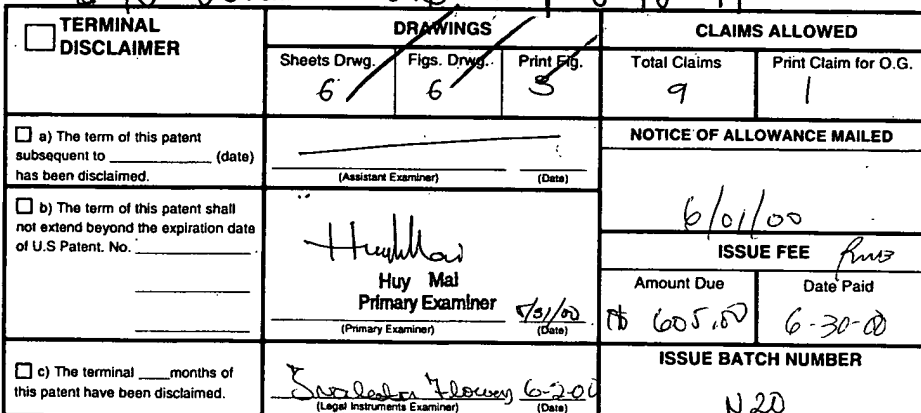 ☐ TERMINAL DISCLAIMER
DRAWINGS
CLAIMS ALLOWED
Sheets Drwg.
Figs. Drwg.
Print Fig.
Total Claims
Print Claim for O.G.
6
6
3
9
1
☐ a) The term of this patent
subsequent to __________ (date)
has been disclaimed.
(Assistant Examiner)
(Date)
NOTICE OF ALLOWANCE MAILED
6/01/00
☐ b) The term of this patent shall
not extend beyond the expiration date
of U.S Patent. No. __________
Huy Mai
Huy Mai
Primary Examiner
5/31/00
(Primary Examiner)
(Date)
ISSUE FEE
Amount Due
Date Paid
605.00
6-30-00
☐ c) The terminal ____months of
this patent have been disclaimed.
Flowers 6-2-00
(Legal Instruments Examiner)
(Date)
ISSUE BATCH NUMBER
N20